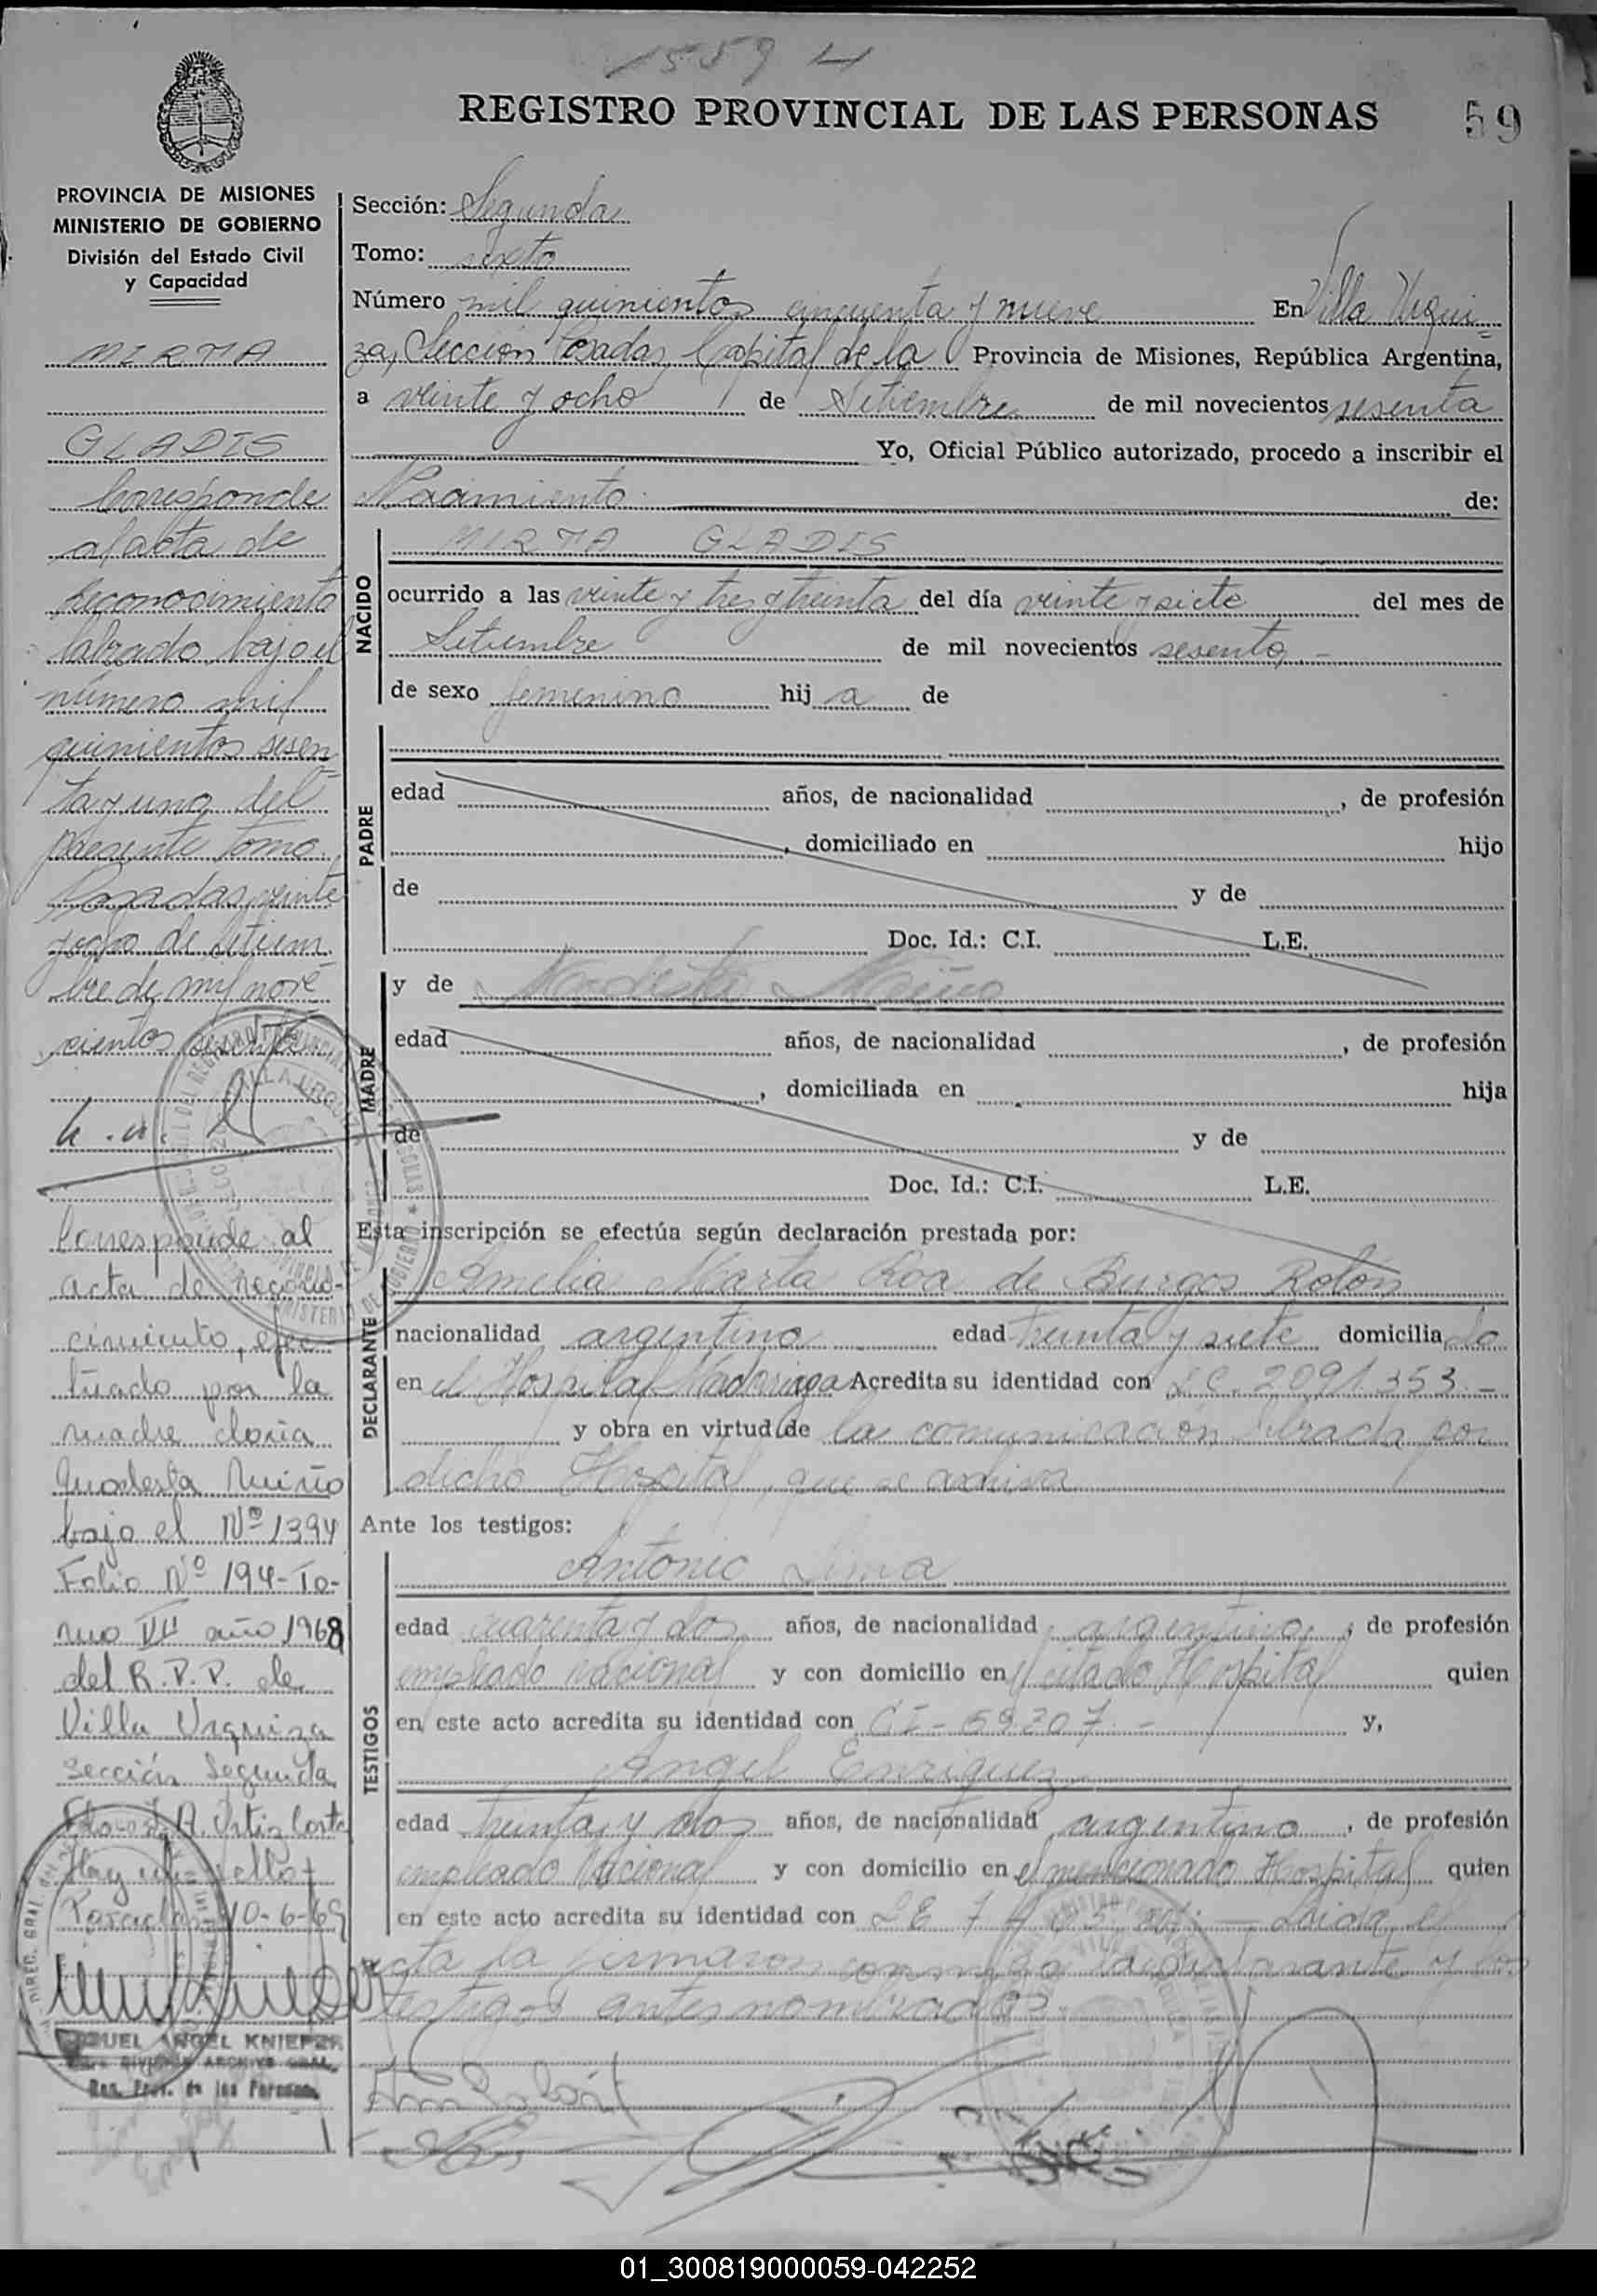 1559
REGISTRO PROVINCIAL DE LAS PERSONAS
59
PROVINCIA DE MISIONES
MINISTERIO DE GOBIERNO
División del Estado Civil
y Capacidad
MIRTA
GLADIS
Corresponde
al acta de
Reconocimiento
labrado bajo el
número mil
quinientos sesen
ta y uno del
presente tomo.
Posadas, veinte
y ocho de setiem
bre de mil nove
cientos sesenta
Corresponde al
acta de recono-
cimiento, efec-
tuado por la
madre doña
Modesta Miño
bajo el Nº 1394
Folio Nº 194-To-
mo VII año 1968
del R.P.P. de
Villa Urquiza
Sección Segunda
Fdo: A. Ortiz
Hay un sello
Posadas 10-6-69
MIGUEL ANGEL KNIEPER
DIVISION ARCHIVO GRAL.
Reg. Prov. de las Personas
Sección: Segunda
Tomo: sexto
Número mil quinientos cincuenta y nueve En Villa Urqui
za, Sección Posadas, Capital de la Provincia de Misiones, República Argentina,
a veinte y ocho de Setiembre de mil novecientos sesenta
Yo, Oficial Público autorizado, procedo a inscribir el
Nacimiento de:
NACIDO
MIRTA GLADIS
ocurrido a las veinte y tres y treinta del día veinte y siete del mes de
Setiembre de mil novecientos sesenta.-
de sexo femenino hij a de
PADRE
edad años, de nacionalidad , de profesión
, domiciliado en hijo
de y de
Doc. Id.: C.I. L.E.
MADRE
y de Modesta Miño
edad años, de nacionalidad , de profesión
, domiciliada en hija
de y de
Doc. Id.: C.I. L.E.
Esta inscripción se efectúa según declaración prestada por:
DECLARANTE
Amelia Marta Roa de Burgos Rolón
nacionalidad argentina edad treinta y siete domicilia da
en el Hospital Madariaga Acredita su identidad con LC. 2091353.-
y obra en virtud de la comunicación librada por
dicho Hospital, que se archiva
Ante los testigos:
TESTIGOS
Antonio Lima
edad cuarenta y dos años, de nacionalidad argentino , de profesión
empleado nacional y con domicilio en el citado Hospital quien
en este acto acredita su identidad con CI-59307.- y,
Angel Enriquez
edad treinta y dos años, de nacionalidad argentino , de profesión
empleado Nacional y con domicilio en el mencionado Hospital quien
en este acto acredita su identidad con LE 7 Leida el
acta la firmaron conmigo la declarante y los
testigos antes nombrados.
01_300819000059-042252